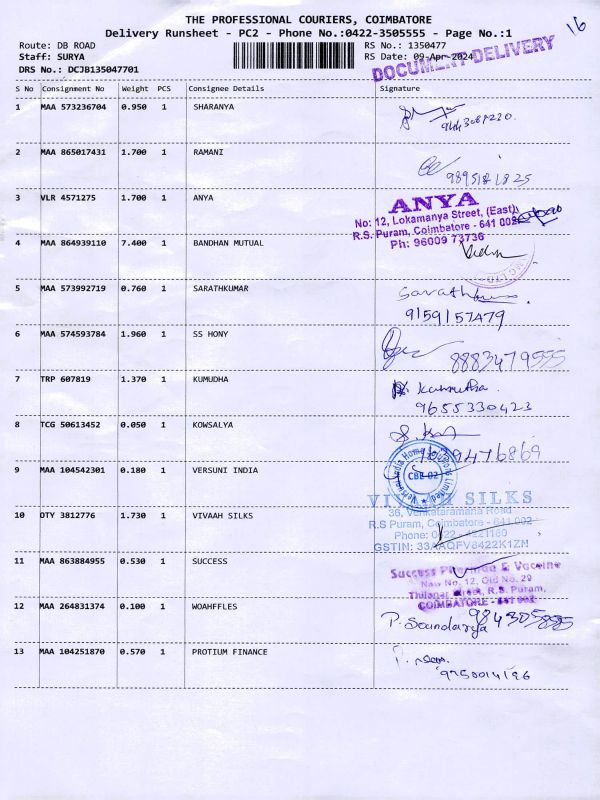 THE PROFESSIONAL COURIERS, COIMBATORE
16
Delivery Runsheet - PC2 - Phone No.:0422-3505555 - Page No.:1
Route: DB ROAD
RS No.: 1350477
Staff: SURYA
RS Date: 09-Apr-2024
DRS No.: DCJB135047701
DOCUMENT DELIVERY
S No Consignment No Weight PCS Consignee Details Signature
1 MAA 573236704 0.950 1 SHARANYA
9443087220.
2 MAA 865017431 1.700 1 RAMANI
9895181825
3 VLR 4571275 1.700 1 ANYA
ANYA
No: 12, Lokamanya Street, (East),
R.S. Puram, Coimbatore - 641 002
Ph: 96009 73736
4 MAA 864939110 7.400 1 BANDHAN MUTUAL
5 MAA 573992719 0.760 1 SARATHKUMAR
Sarathkumar
9159157479
6 MAA 574593784 1.960 1 SS HONY
8883479555
7 TRP 607819 1.370 1 KUMUDHA
K. Kumutha
9655330423
8 TCG 50613452 0.050 1 KOWSALYA
9 MAA 104542301 0.180 1 VERSUNI INDIA
Versuni India Home Solutions Limited
CBE-02
10 OTY 3812776 1.730 1 VIVAAH SILKS
VIVAAH SILKS
36, Venkataramana Road
R.S Puram, Coimbatore - 641 002
Phone: 0422 - 4221160
GSTIN: 33AAQFV8422K1ZN
11 MAA 863884955 0.530 1 SUCCESS
Success Pharma & Vaccine
New No. 12, Old No. 29
Thilagar Street, R.S. Puram,
COIMBATORE - 641 002
12 MAA 264831374 0.100 1 WOAHFFLES
P. Soundarya
13 MAA 104251870 0.570 1 PROTIUM FINANCE
9750014196